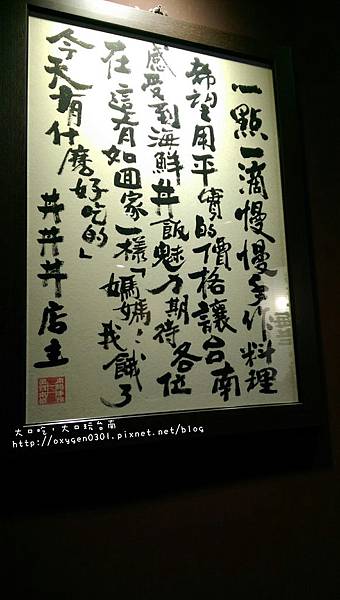 一點一滴慢慢手作料理
希望用平實的價格讓台南
感受到海鮮丼飯魅力期待各位
在這有如回家一樣「媽媽:我餓了
今天有什麼好吃的」
丼丼丼店主
大口吃，大口玩台南
http://oxygen0301.pixnet.net/blog